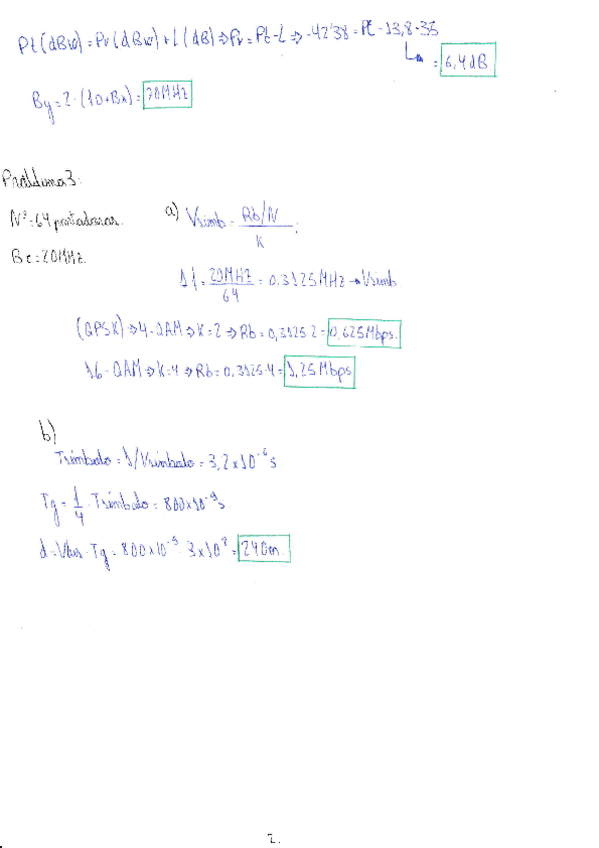 Pt(dBw) = Pr(dBw) + L(dB) ⇒ Pr = Pt - L ⇒ -42'38 = Pt - 13,8 - 35
= 6,4 dB
By = 2·(10+Bx) = 70MHz
Problema 3:
Nº = 64 portadoras.
a) Vsimb = (Rb/N)/K ;
Bc = 20MHz.
Δf = 20MHz/64 = 0,3125MHz → Vsimb
(QPSK) ⇒ 4-QAM ⇒ K=2 ⇒ Rb = 0,3125·2 = 0,625Mbps.
16-QAM ⇒ K=4 ⇒ Rb = 0,3125·4 = 1,25Mbps
b)
Tsímbolo = 1/Vsímbolo = 3,2x10^-6 s
Tg = 1/4 · Tsímbolo = 800x10^-9 s
d = Vluz · Tg = 800x10^-9 · 3x10^8 = 240m.
2.